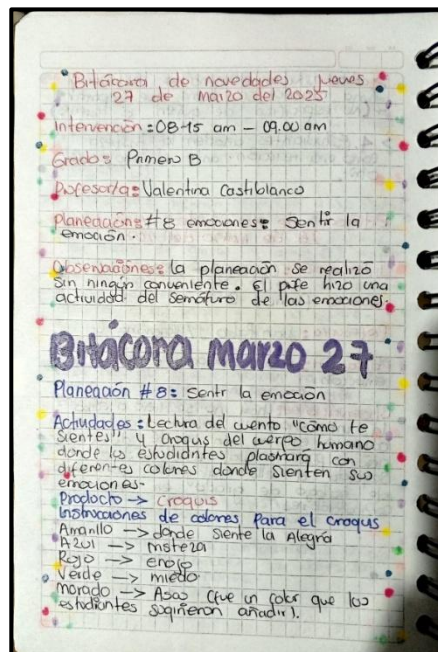 Bitácora de novedades jueves
27 de marzo del 2025
Intervención: 08-15 am – 09.00 am
Grado: Primero B
Profesor/a: Valentina Castiblanco
Planeación: #8 emociones: Sentir la
emoción.
Observaciones: la planeación se realizó
sin ningún conveniente. El profe hizo una
actividad del semáforo de las emociones.
Bitácora marzo 27
Planeación #8: Sentir la emoción
Actividades: Lectura del cuento "cómo te
sientes" y croquis del cuerpo humano
donde los estudiantes plasmara con
diferentes colores donde sienten sus
emociones.
Producto → croquis
Instrucciones de colores para el croquis
Amarillo → donde siente la Alegría
Azul → tristeza
Rojo → enojo
Verde → miedo
morado → Asco (fue un color que los
estudiantes sugirieron añadir).